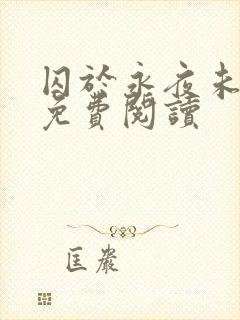 囚於永夜未
免費閱讀
匡嚴